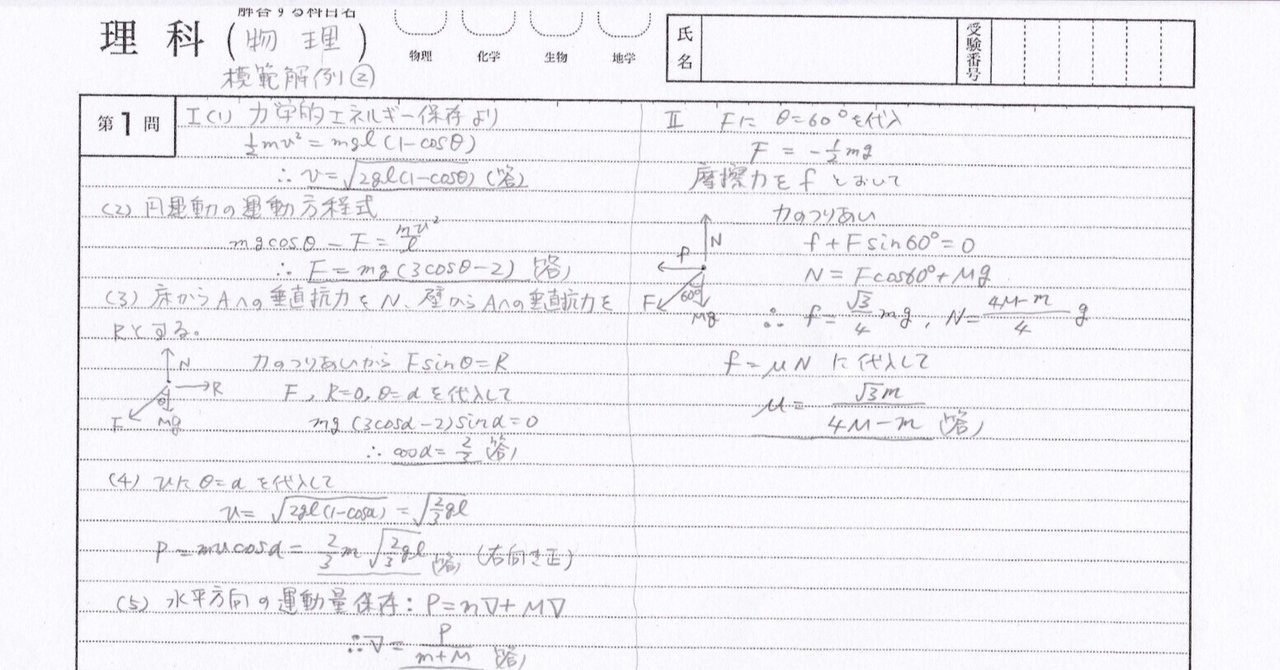 解答する科目名
理科(物理)
物理 化学 生物 地学
氏名
受験番号
模範解例②
第1問
I(1) 力学的エネルギー保存より
½mv² = mgl(1-cosθ)
∴ v=√2gl(1-cosθ) (答)
(2) 円運動の運動方程式
mgcosθ - F = mv²/l
∴ F = mg(3cosθ-2) (答)
(3) 床からAへの垂直抗力をN、壁からAへの垂直抗力を
Rとする。
N
R
θ
F
Mg
力のつりあいから Fsinθ=R
F, R=0, θ=αを代入して
mg(3cosα-2)sinα=0
∴ cosα=2/3 (答)
(4) vにθ=αを代入して
v= √2gl(1-cosα) = √(2/3)gl
P = mvcosα = 2/3 m √(2/3)gl (答) (右向き正)
(5) 水平方向の運動量保存: P=mV+MV
∴V= P/(m+M) (答)
II Fに θ=60°を代入
F = -½mg
摩擦力をfとおいて
力のつりあい
N
f
F
60°
Mg
f+Fsin60°=0
N = Fcos60°+Mg
∴ f=√3/4 mg, N= (4M-m)/4 g
f=μN に代入して
μ= √3m/(4M-m) (答)